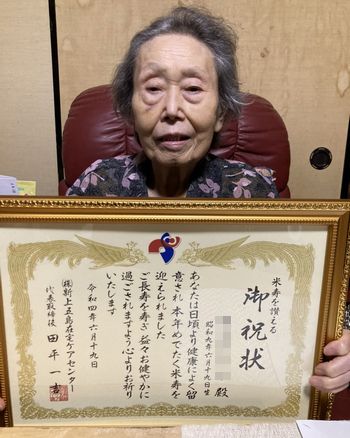 米寿を讃える
御祝状
昭和九年六月十九日生
殿
あなたは日頃より健康によく留
意され本年めでたく米寿を
迎えられました
ご長寿を寿ぎ益々お健やかに
過ごされますよう心よりお祈り
いたします
令和四年六月十九日
㈱新上五島在宅ケアセンター
代表取締役 田平一吉